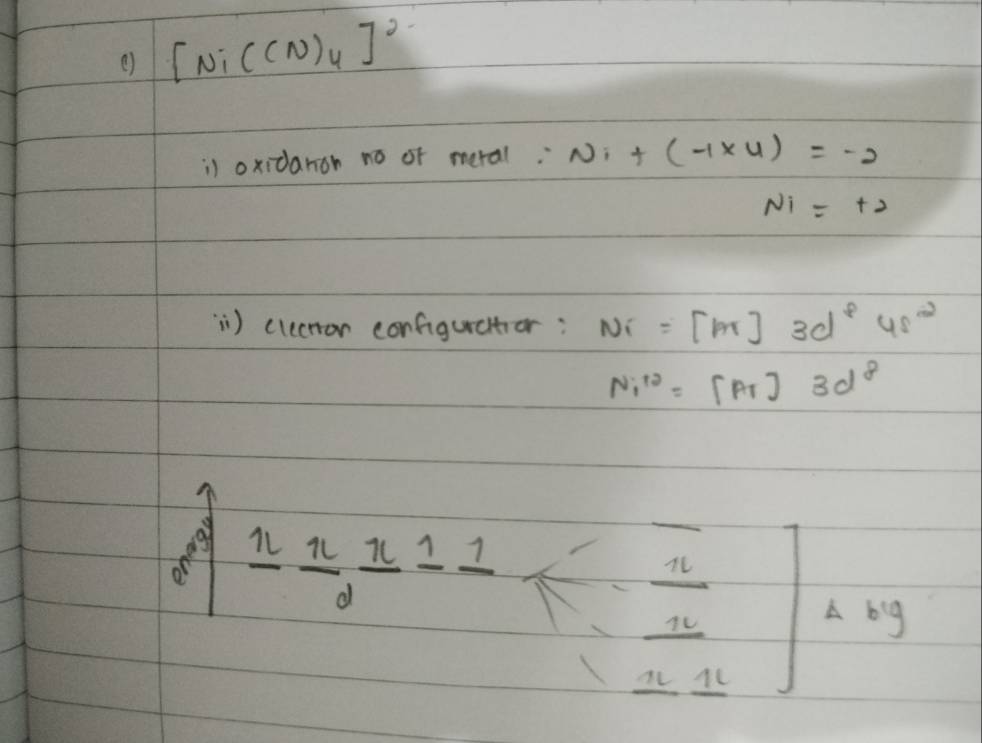 c) [Ni(CN)4]2-
i) oxidation no of metal : Ni + (-1x4) = -2
Ni = +2
ii) electron configuration : Ni = [Ar] 3d8 4s2
Ni+2 = [Ar] 3d8
energy
1l 1l 1l 1 1
d
1l
1l
1l 1l
Δ big